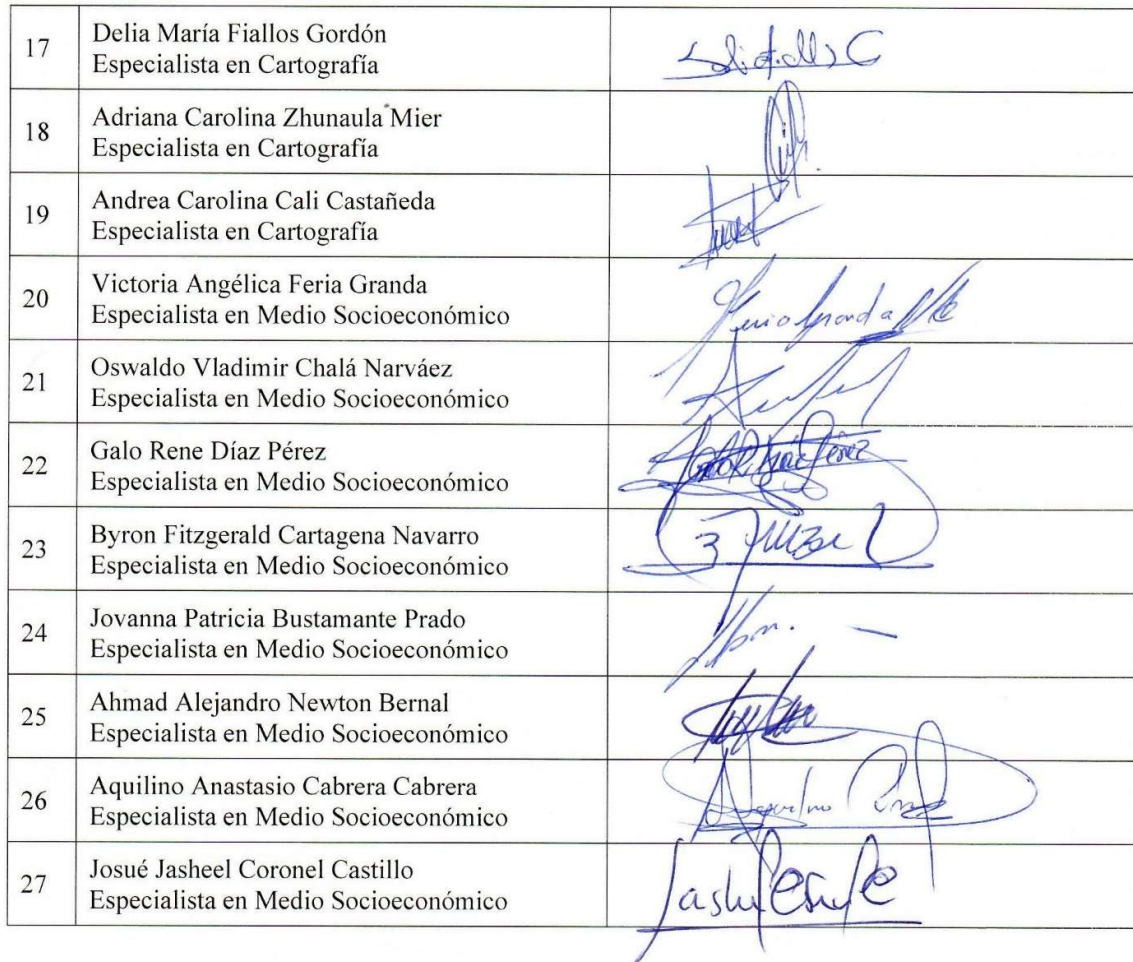 17
Delia María Fiallos Gordón
Especialista en Cartografía
18
Adriana Carolina Zhunaula Mier
Especialista en Cartografía
19
Andrea Carolina Cali Castañeda
Especialista en Cartografía
20
Victoria Angélica Feria Granda
Especialista en Medio Socioeconómico
21
Oswaldo Vladimir Chalá Narváez
Especialista en Medio Socioeconómico
22
Galo Rene Díaz Pérez
Especialista en Medio Socioeconómico
23
Byron Fitzgerald Cartagena Navarro
Especialista en Medio Socioeconómico
24
Jovanna Patricia Bustamante Prado
Especialista en Medio Socioeconómico
25
Ahmad Alejandro Newton Bernal
Especialista en Medio Socioeconómico
26
Aquilino Anastasio Cabrera Cabrera
Especialista en Medio Socioeconómico
27
Josué Jasheel Coronel Castillo
Especialista en Medio Socioeconómico